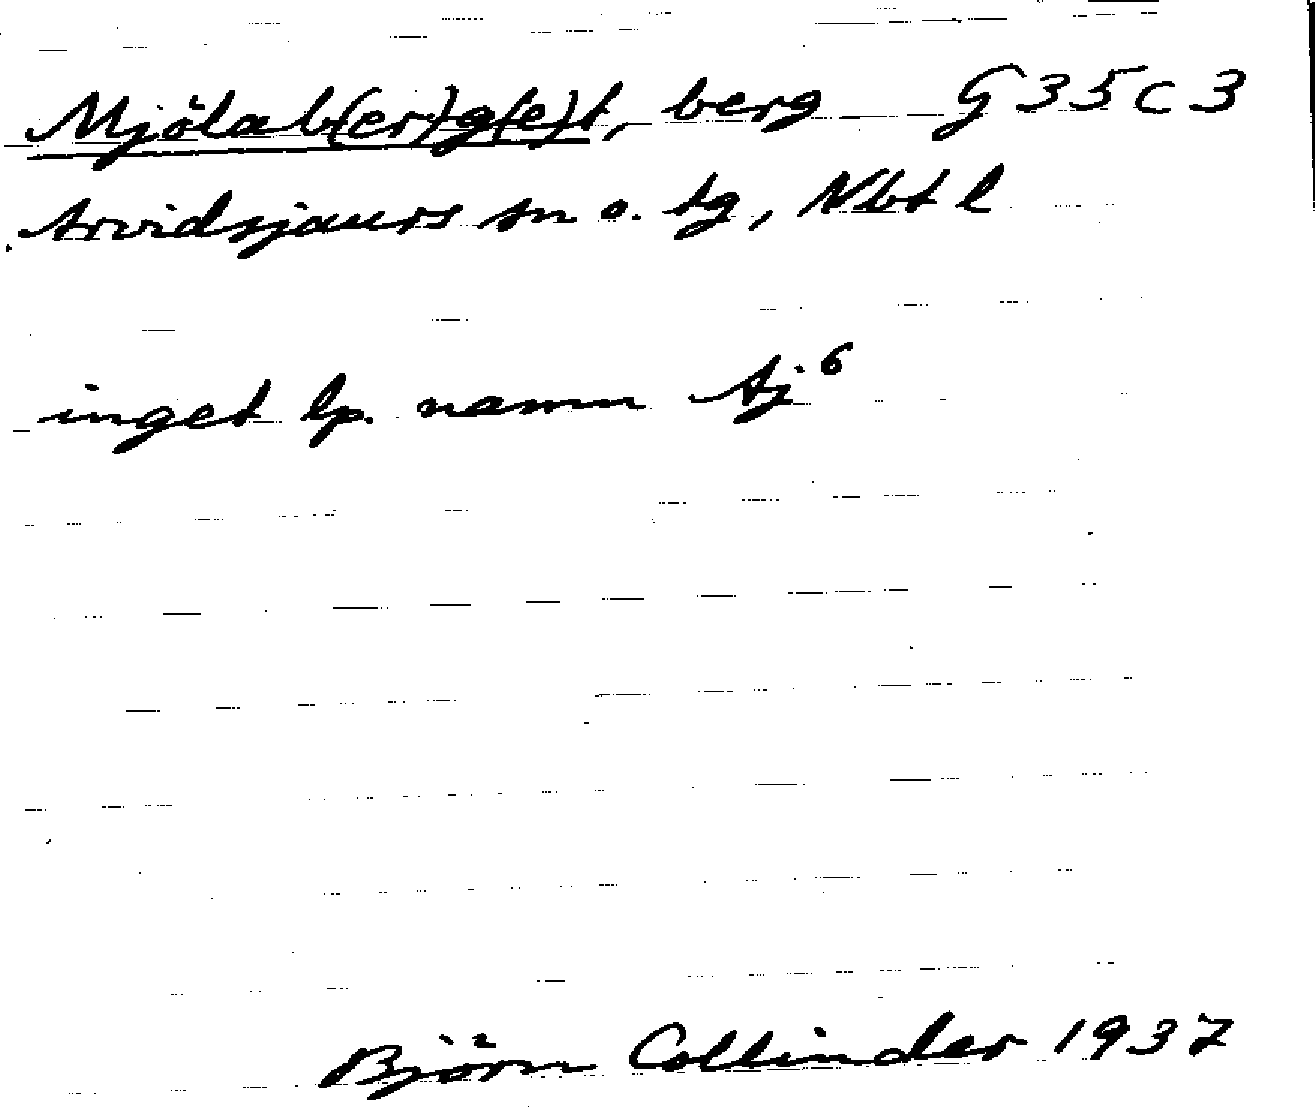 Mjölab(er)g(e)t, berg G35c3
Arvidsjaurs sn o. tg, Nbt l
inget lp. namn Aj⁶
Björn Collinder 1937